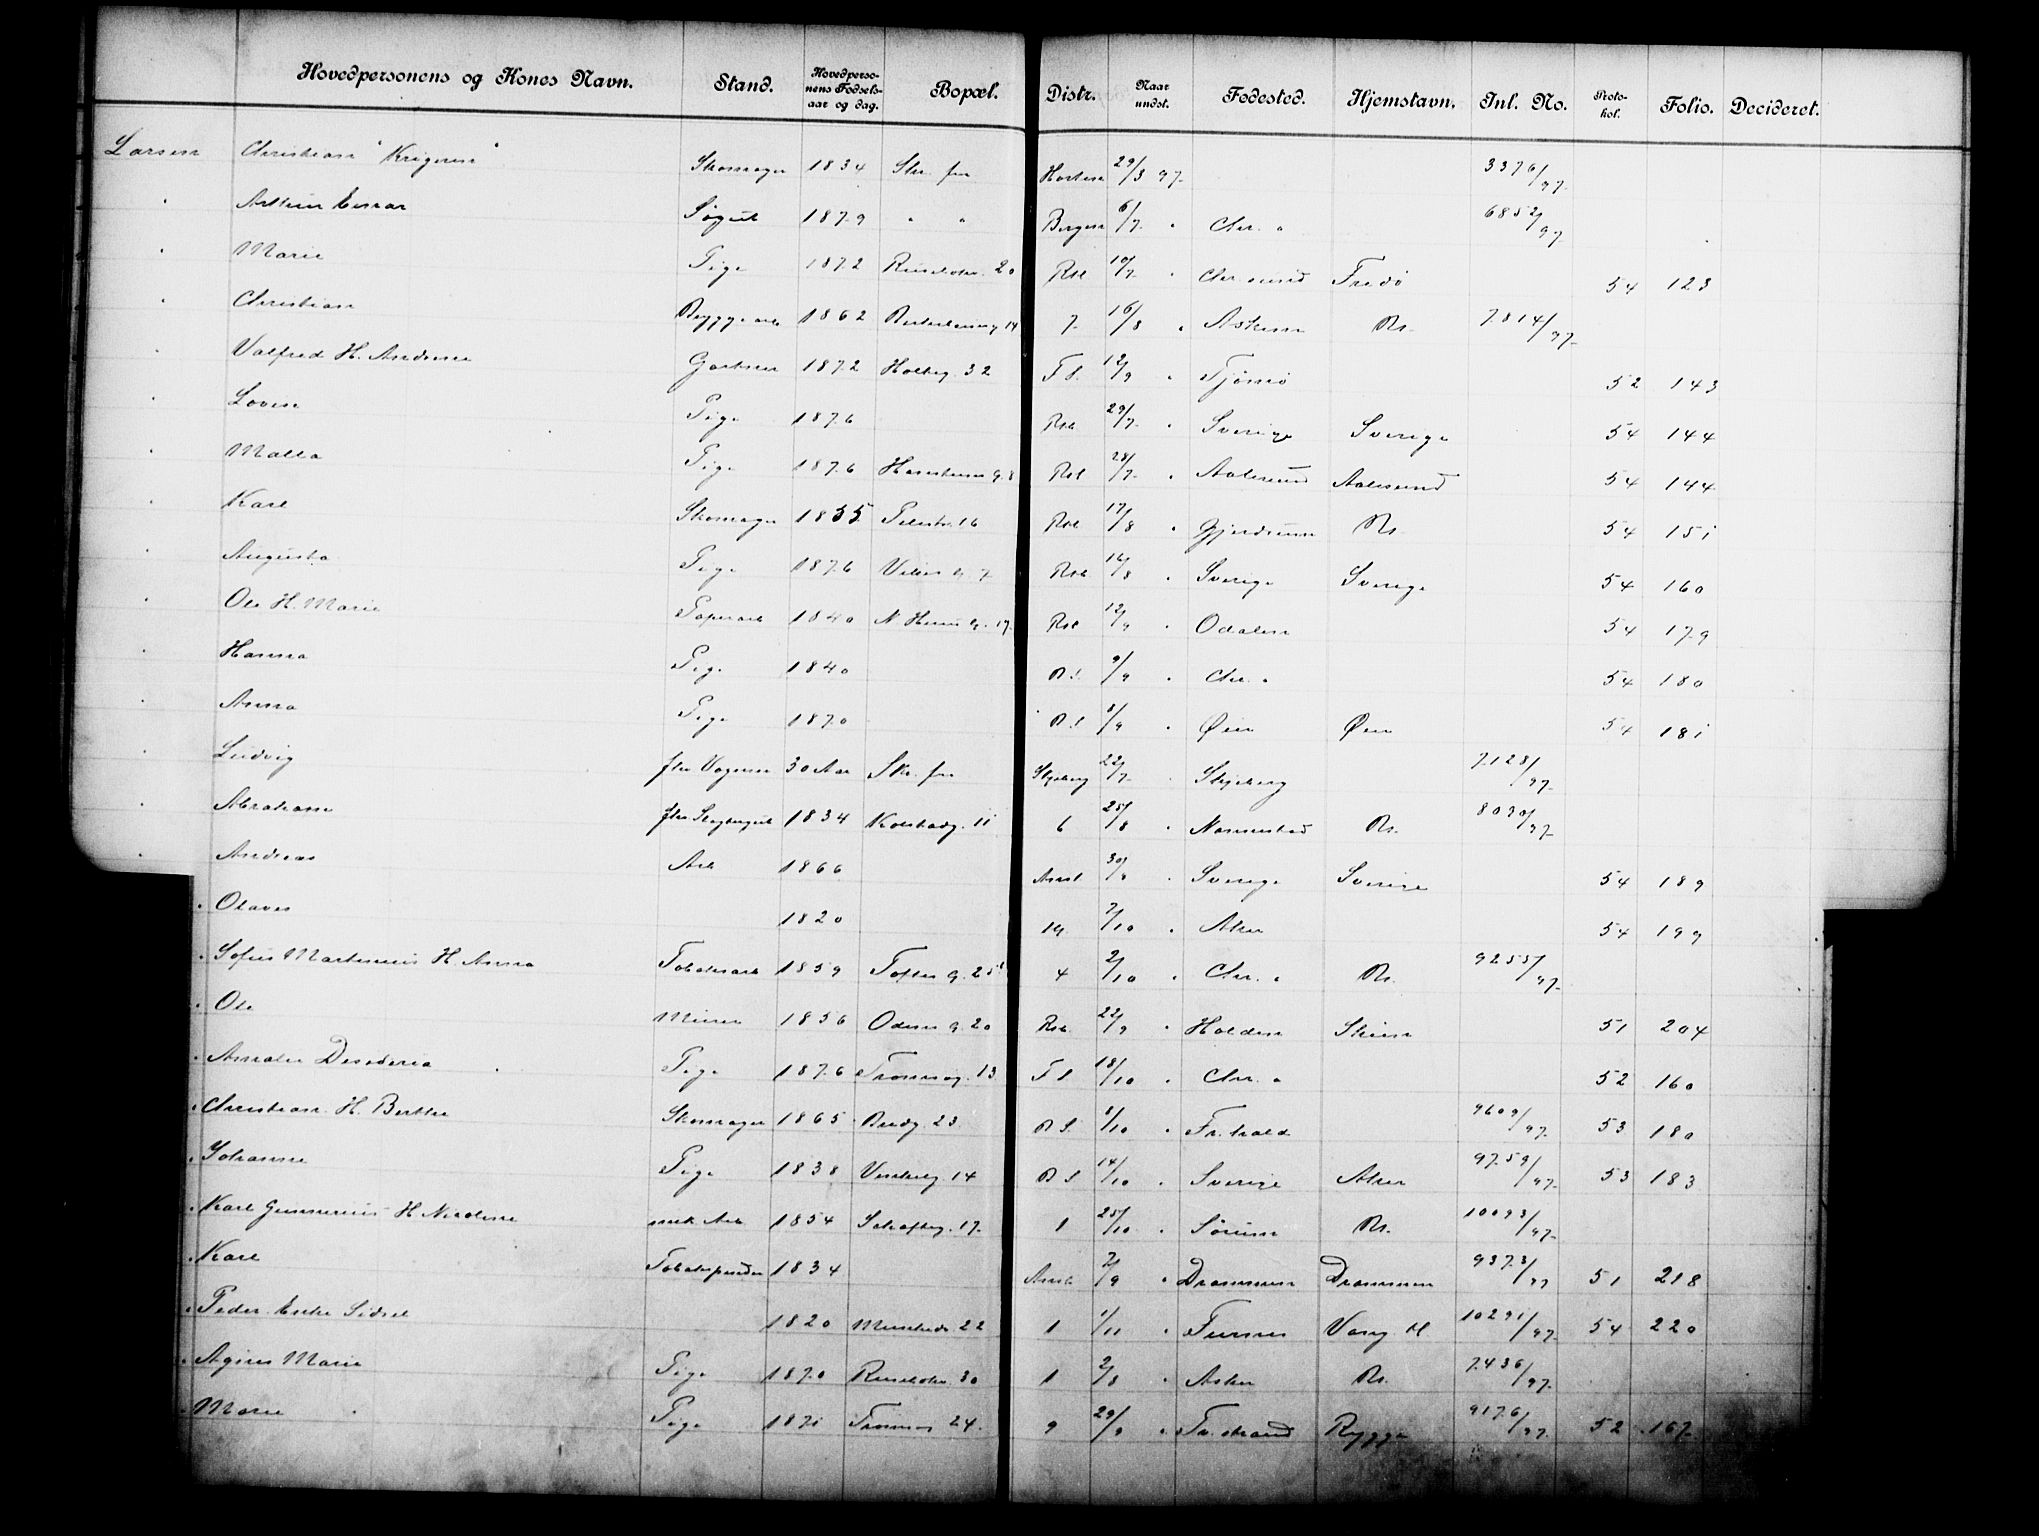 Hovedpersonens og Kones Navn. Stand. Hovedpersonens Fødselsaar og dag. Bopæl. Distr. Naar undst. Fødested. Hjemstavn. Inl. No. Protokol. Folio. Decideret.
Larsen Christian "Krigeren" Skomager 1834 Str. fra Horten 29/3 97. 3376/97.
Arthur Einar Søgut 1879 " " Bergen 6/7. " Chr. a 6852/97.
Marie Pige 1872 Ruseløkv. 20 Rst 10/7. " Chr.sund Fredø 54 123
Christian Bryggearb 1862 14 7. 16/8 " Askim Rs. 7814/97.
Valfred H. Andrine Gartner 1872 Holbg. 32 F.f. 12/9 " Tjømø 52 143
Lovise Pige 1876 Rst 29/7. " Sverige Sverige 54 144
Malla Pige 1876 Hausmanns g. 8 Rst 28/7. " Aalesund Aalesund 54 144
Karl Skomager 1835 Pilestr. 16 Rst 17/8 " Gjerdrum Rs. 54 151
Augusta Pige 1876 Vibes g. 7. Rst 16/8 " Sverige Sverige 54 160
Ole H. Marie Papirarb 1840 N. Huus g. 17. Rst 12/9 " Odalen 54 179
Hanna Pige 1840 B.f. 9/9 " Chr. a 54 180
Anna Pige 1870 B.f. 8/9 " Øier Øier 54 181
Ludvig fhv Vognm 30 Aar Str. fra Skjeberg 22/7. " Skjeberg 7128/97.
Abraham 1834 Kolstadg. 11 6 25/8 " Nannestad Rs. 8090/97.
Andreas Arb 1866 Anst 30/8 " Sverige Sverige 54 189
Olaves 1820 14. 7/10 " Aker 54 199
Sofus Martinius H. Anna Tobaksarb 1859 Toftes g. 25 4 2/10 " Chr. a Rs. 9255/97.
Ole Murer 1856 Odins g. 20 Rst. 22/9 " Holden Skien 51 204
Amalie Desideria Pige 1876 Tromsøg. 13 F.f 18/10 " Chr. a 52 160
Christian H. Berthe Skomager 1865 Brudg. 23. B.f. 8/10 " Fr.hald 9609/97. 53 180
Johanne Pige 1838 14 B.f 14/10 " Sverige Aker 9759/97. 53 183
Karl Gunnerius H. Nicoline mek Arb 1854 Schaftg. 17. 1 25/10 " Sørum Rs. 10093/97.
Karl Tobakspinder 1834 Anst. 7/9 " Drammen Drammen 9373/97 51 218
Peder Enke Sidsel 1820 22 1 1/11 " Furnes Vang H. 10291/97. 54 220
Agnes Marie Pige 1870 Ruseløkv. 30 1 2/8 " Asker Rs. 7436/97.
Marie Pige 1871 Tromsøg 24. 9 29/9 " Fr.strand Rygge 9176/97. 52 167